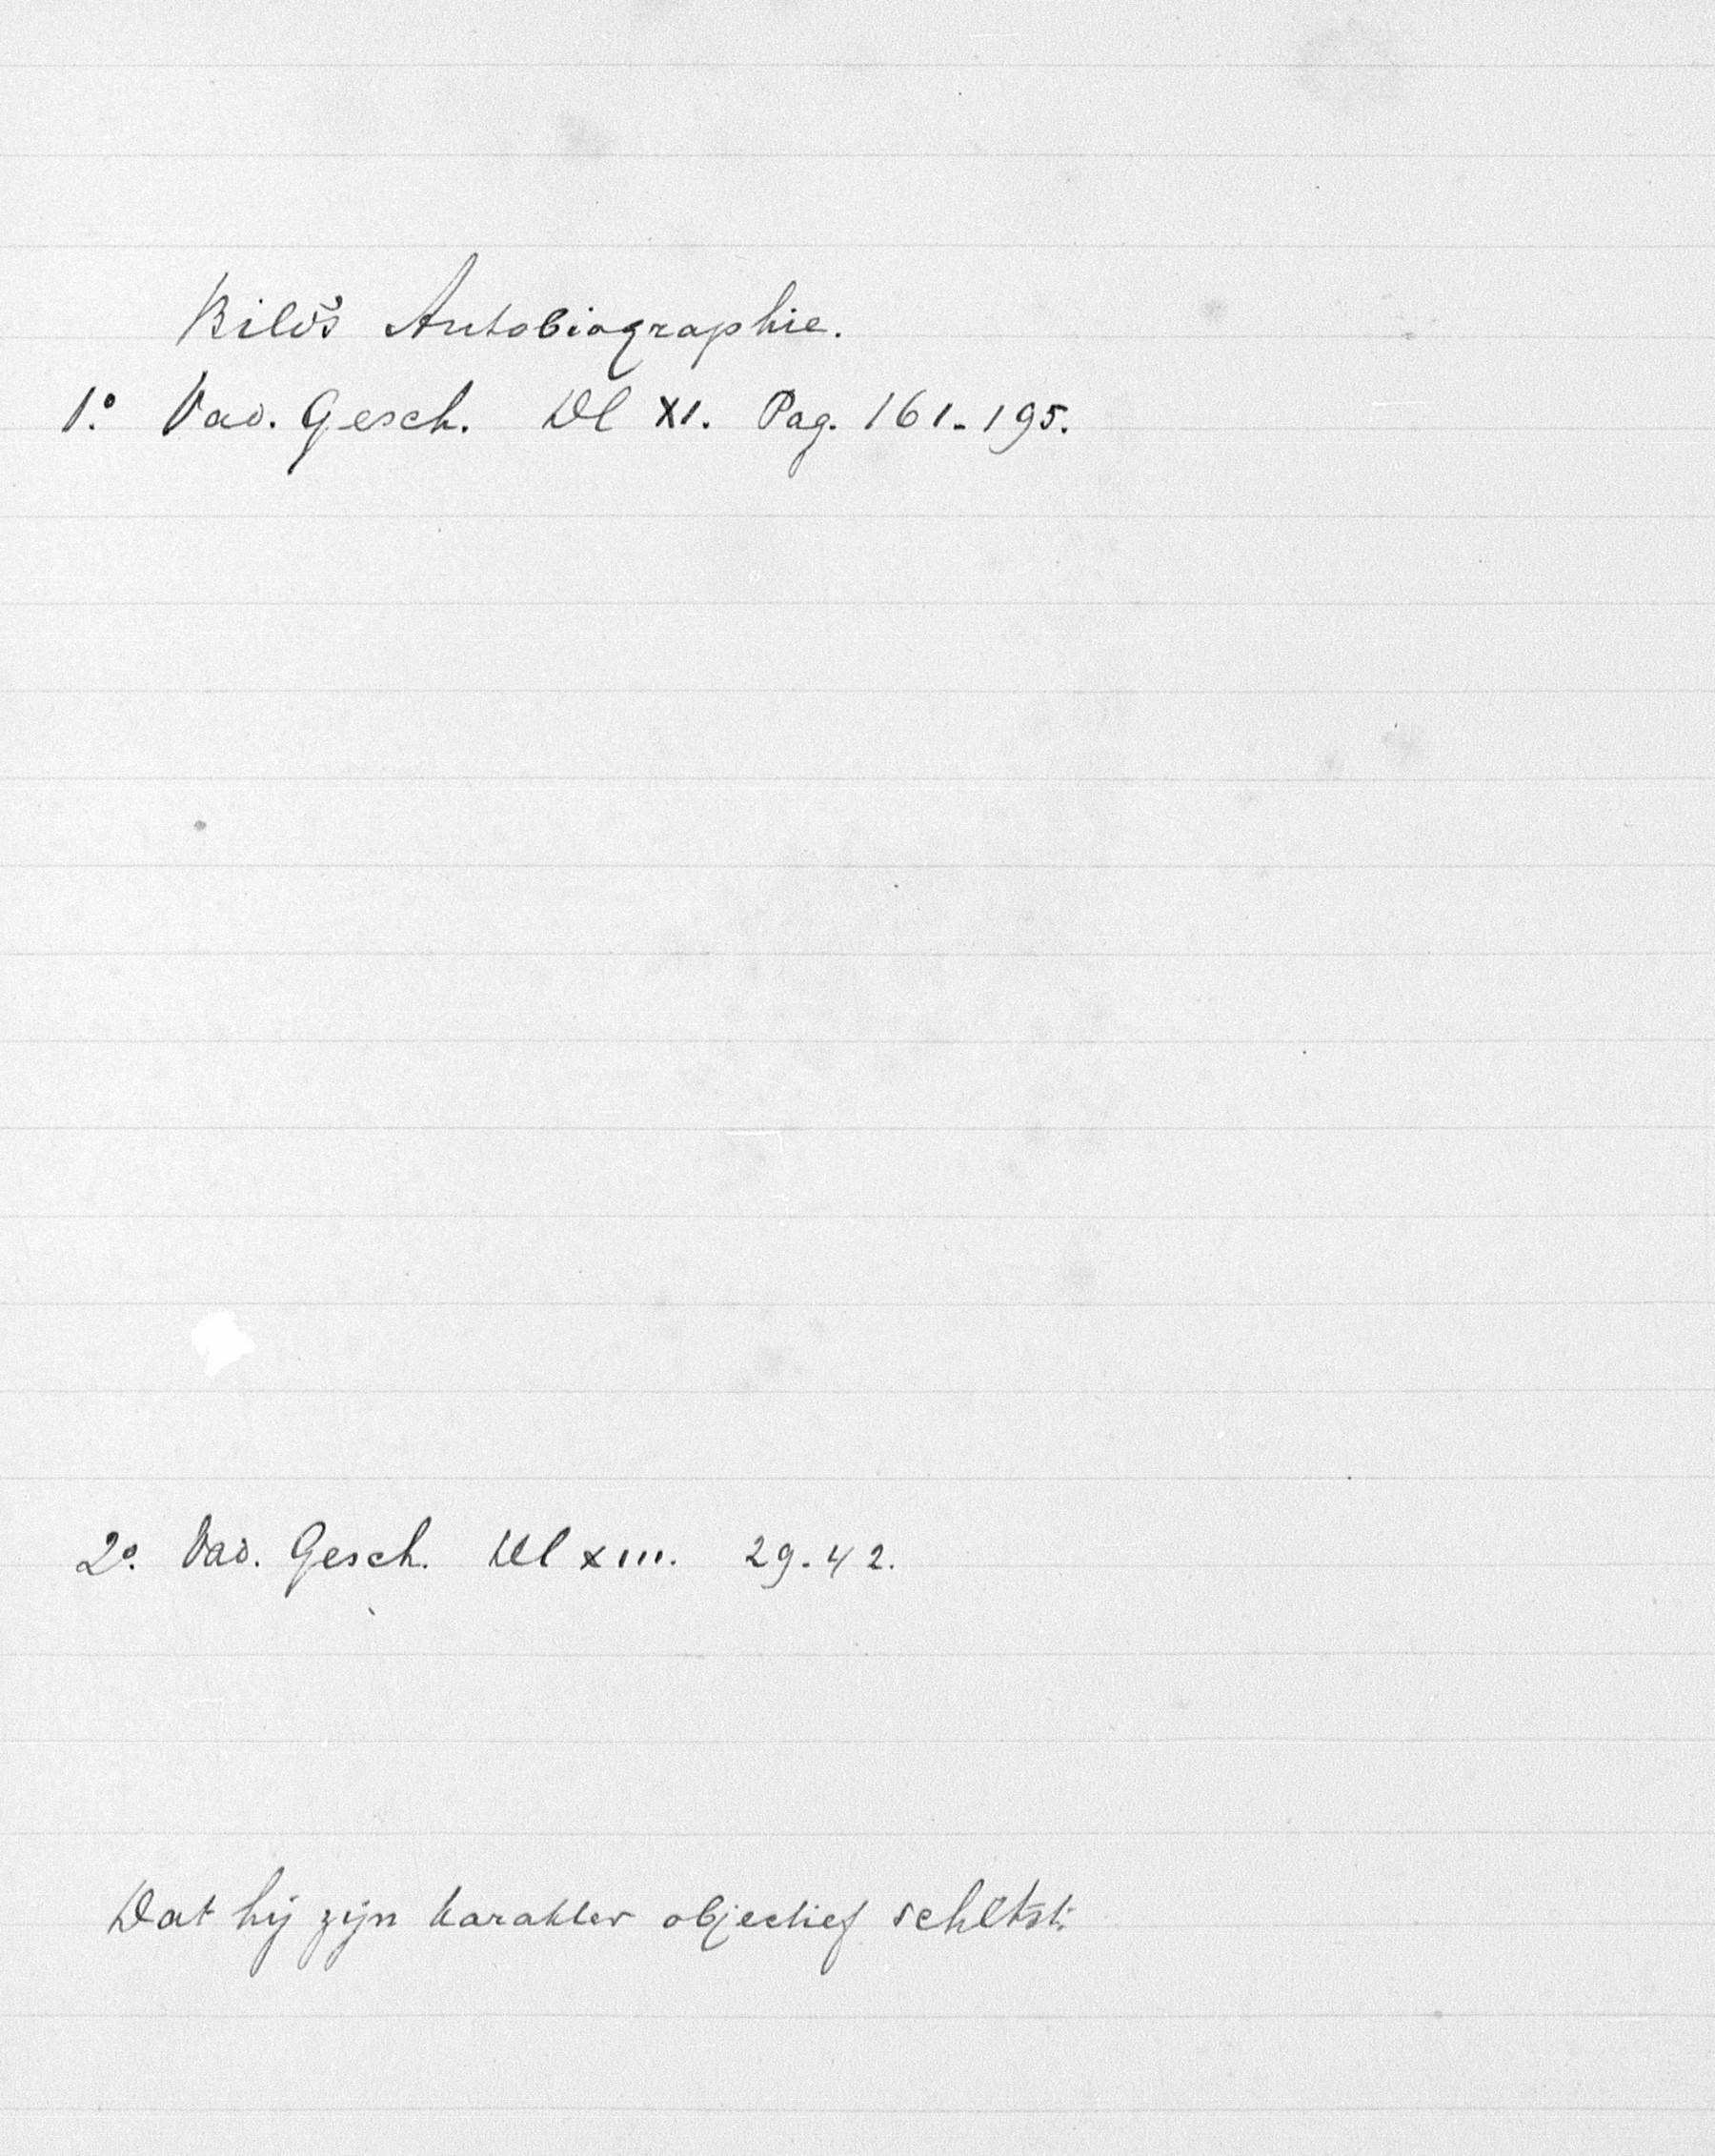 Bild's Autobiographie.
1.º Vad. Gesch. Dl XI. Pag. 161-195.
2.º Vad. Gesch. Dl XIII. 29-42.
Dat hij zijn karakter objectief schetst.